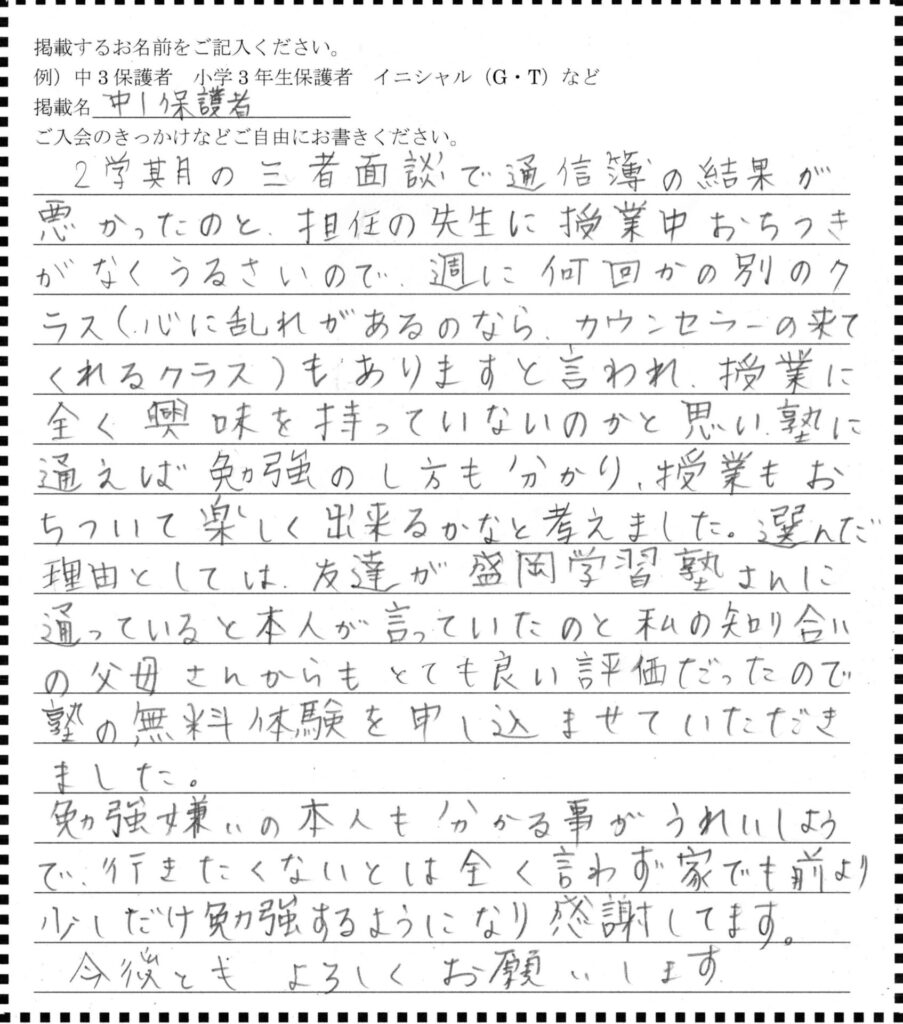 掲載するお名前をご記入ください。
例）中３保護者　小学３年生保護者　イニシャル（G・T）など
掲載名 中1保護者
ご入会のきっかけなどご自由にお書きください。
2学期の三者面談で通信簿の結果が
悪かったのと、担任の先生に授業中おちつき
がなくうるさいので、週に何回かの別のク
ラス(心に乱れがあるのなら、カウンセラーの来て
くれるクラス)もありますと言われ、授業に
全く興味を持っていないのかと思い、塾に
通えば勉強のし方も分かり、授業もお
ちついて楽しく出来るかなと考えました。選んだ
理由としては、友達が盛岡学習塾さんに
通っていると本人が言っていたのと私の知り合い
の父母さんからもとても良い評価だったので
塾の無料体験を申し込ませていただき
ました。
勉強嫌いの本人も分かる事がうれいしよう
で、行きたくないとは全く言わず家でも前より
少しだけ勉強するようになり感謝してます。
今後とも よろしくお願いします